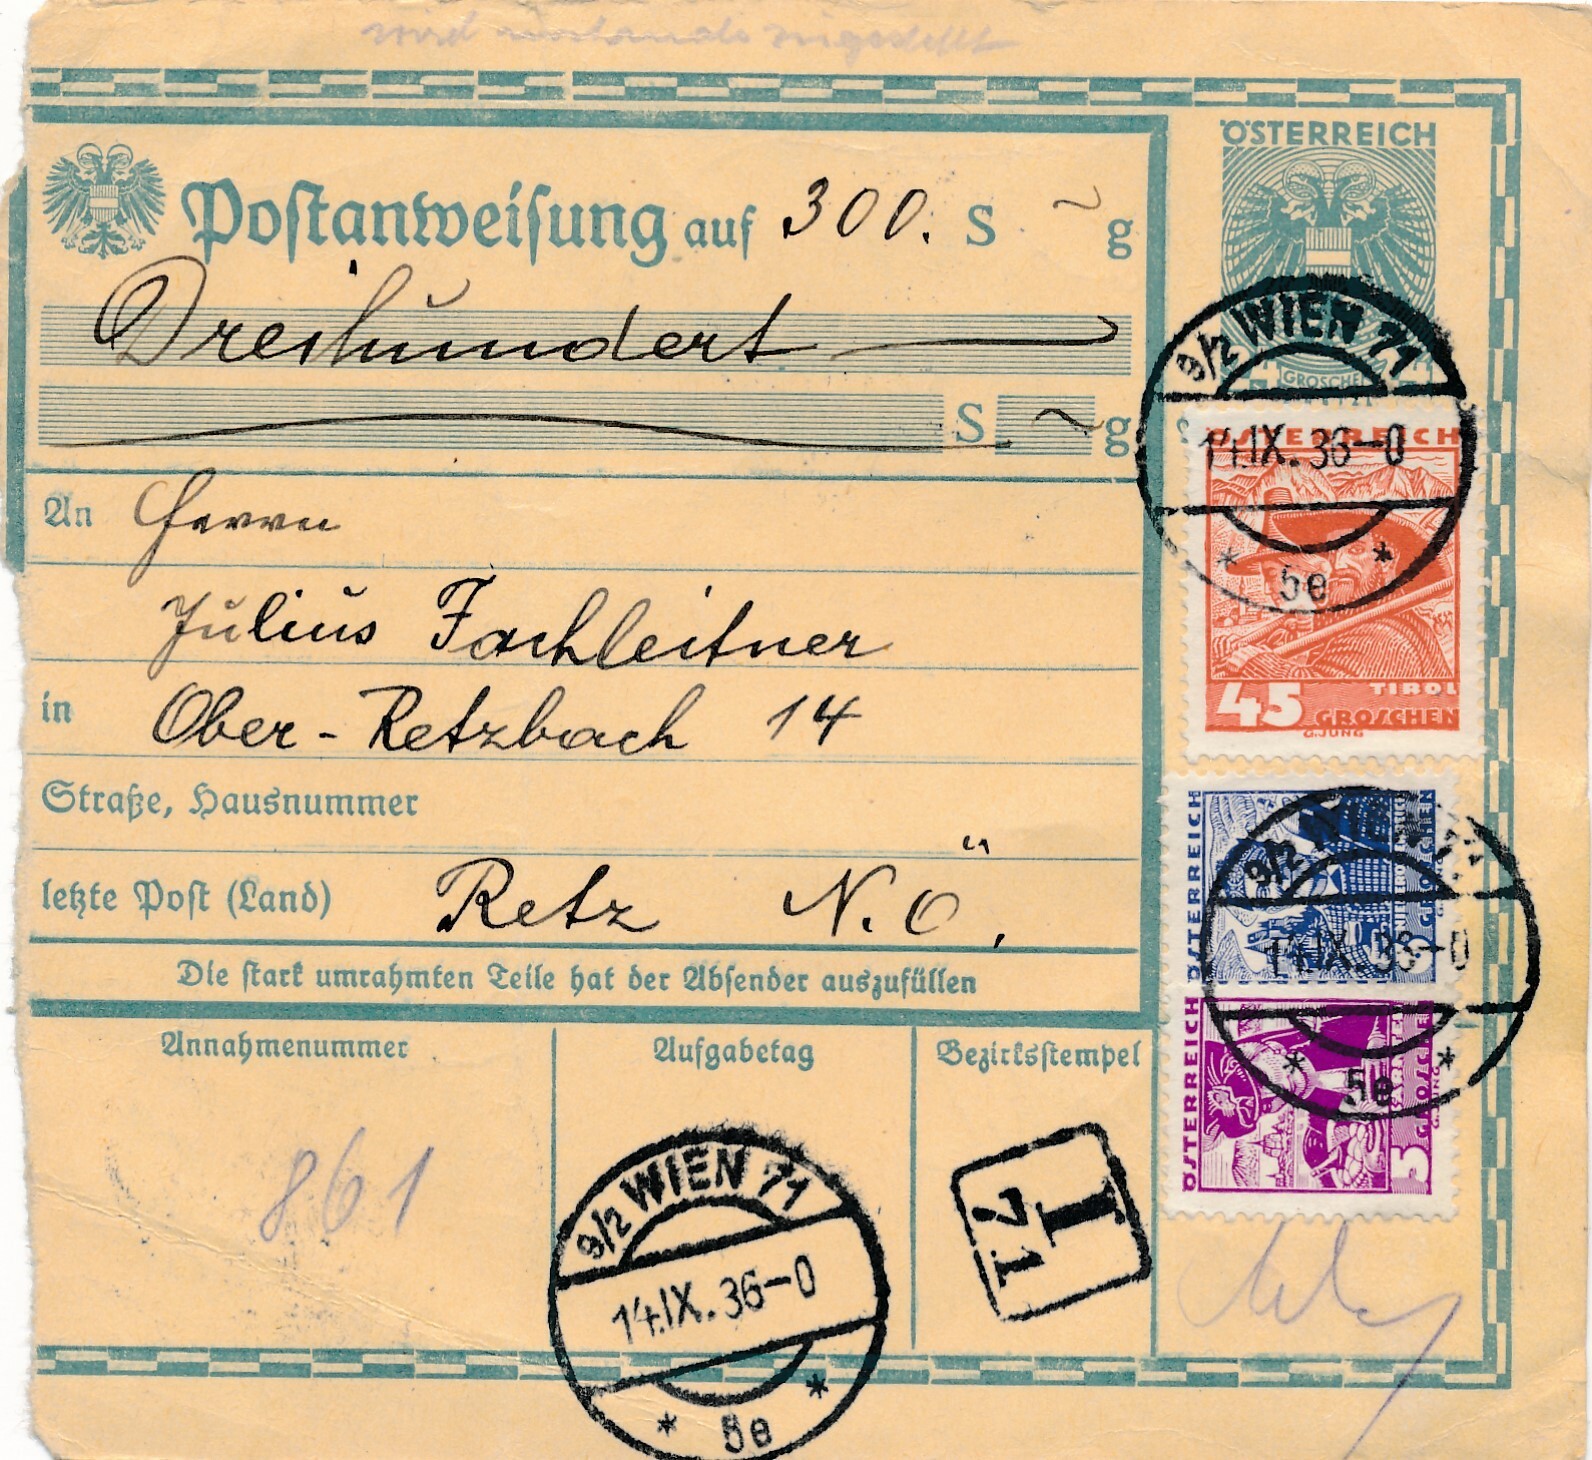 Postanweisung auf 300. S ~ g
Dreihundert
S ~ g
An Herrn
Julius Fachleitner
in Ober-Retzbach 14
Straße, Hausnummer
letzte Post (Land) Retz N.Ö.
Die stark umrahmten Teile hat der Absender auszufüllen
Annahmenummer
861
Aufgabetag
9/2 WIEN 71
14.IX.36-0
* 5e *
Bezirksstempel
I
71
ÖSTERREICH
GROSCHEN
9/2 WIEN 71
14.IX.36-0
* 5e *
ÖSTERREICH
45 TIROL
GROSCHEN
G.JUNG
ÖSTERREICH
GROSCHEN
9/2 WIEN 71
14.IX.36-0
* 5e *
ÖSTERREICH
3
GROSCHEN
G.JUNG